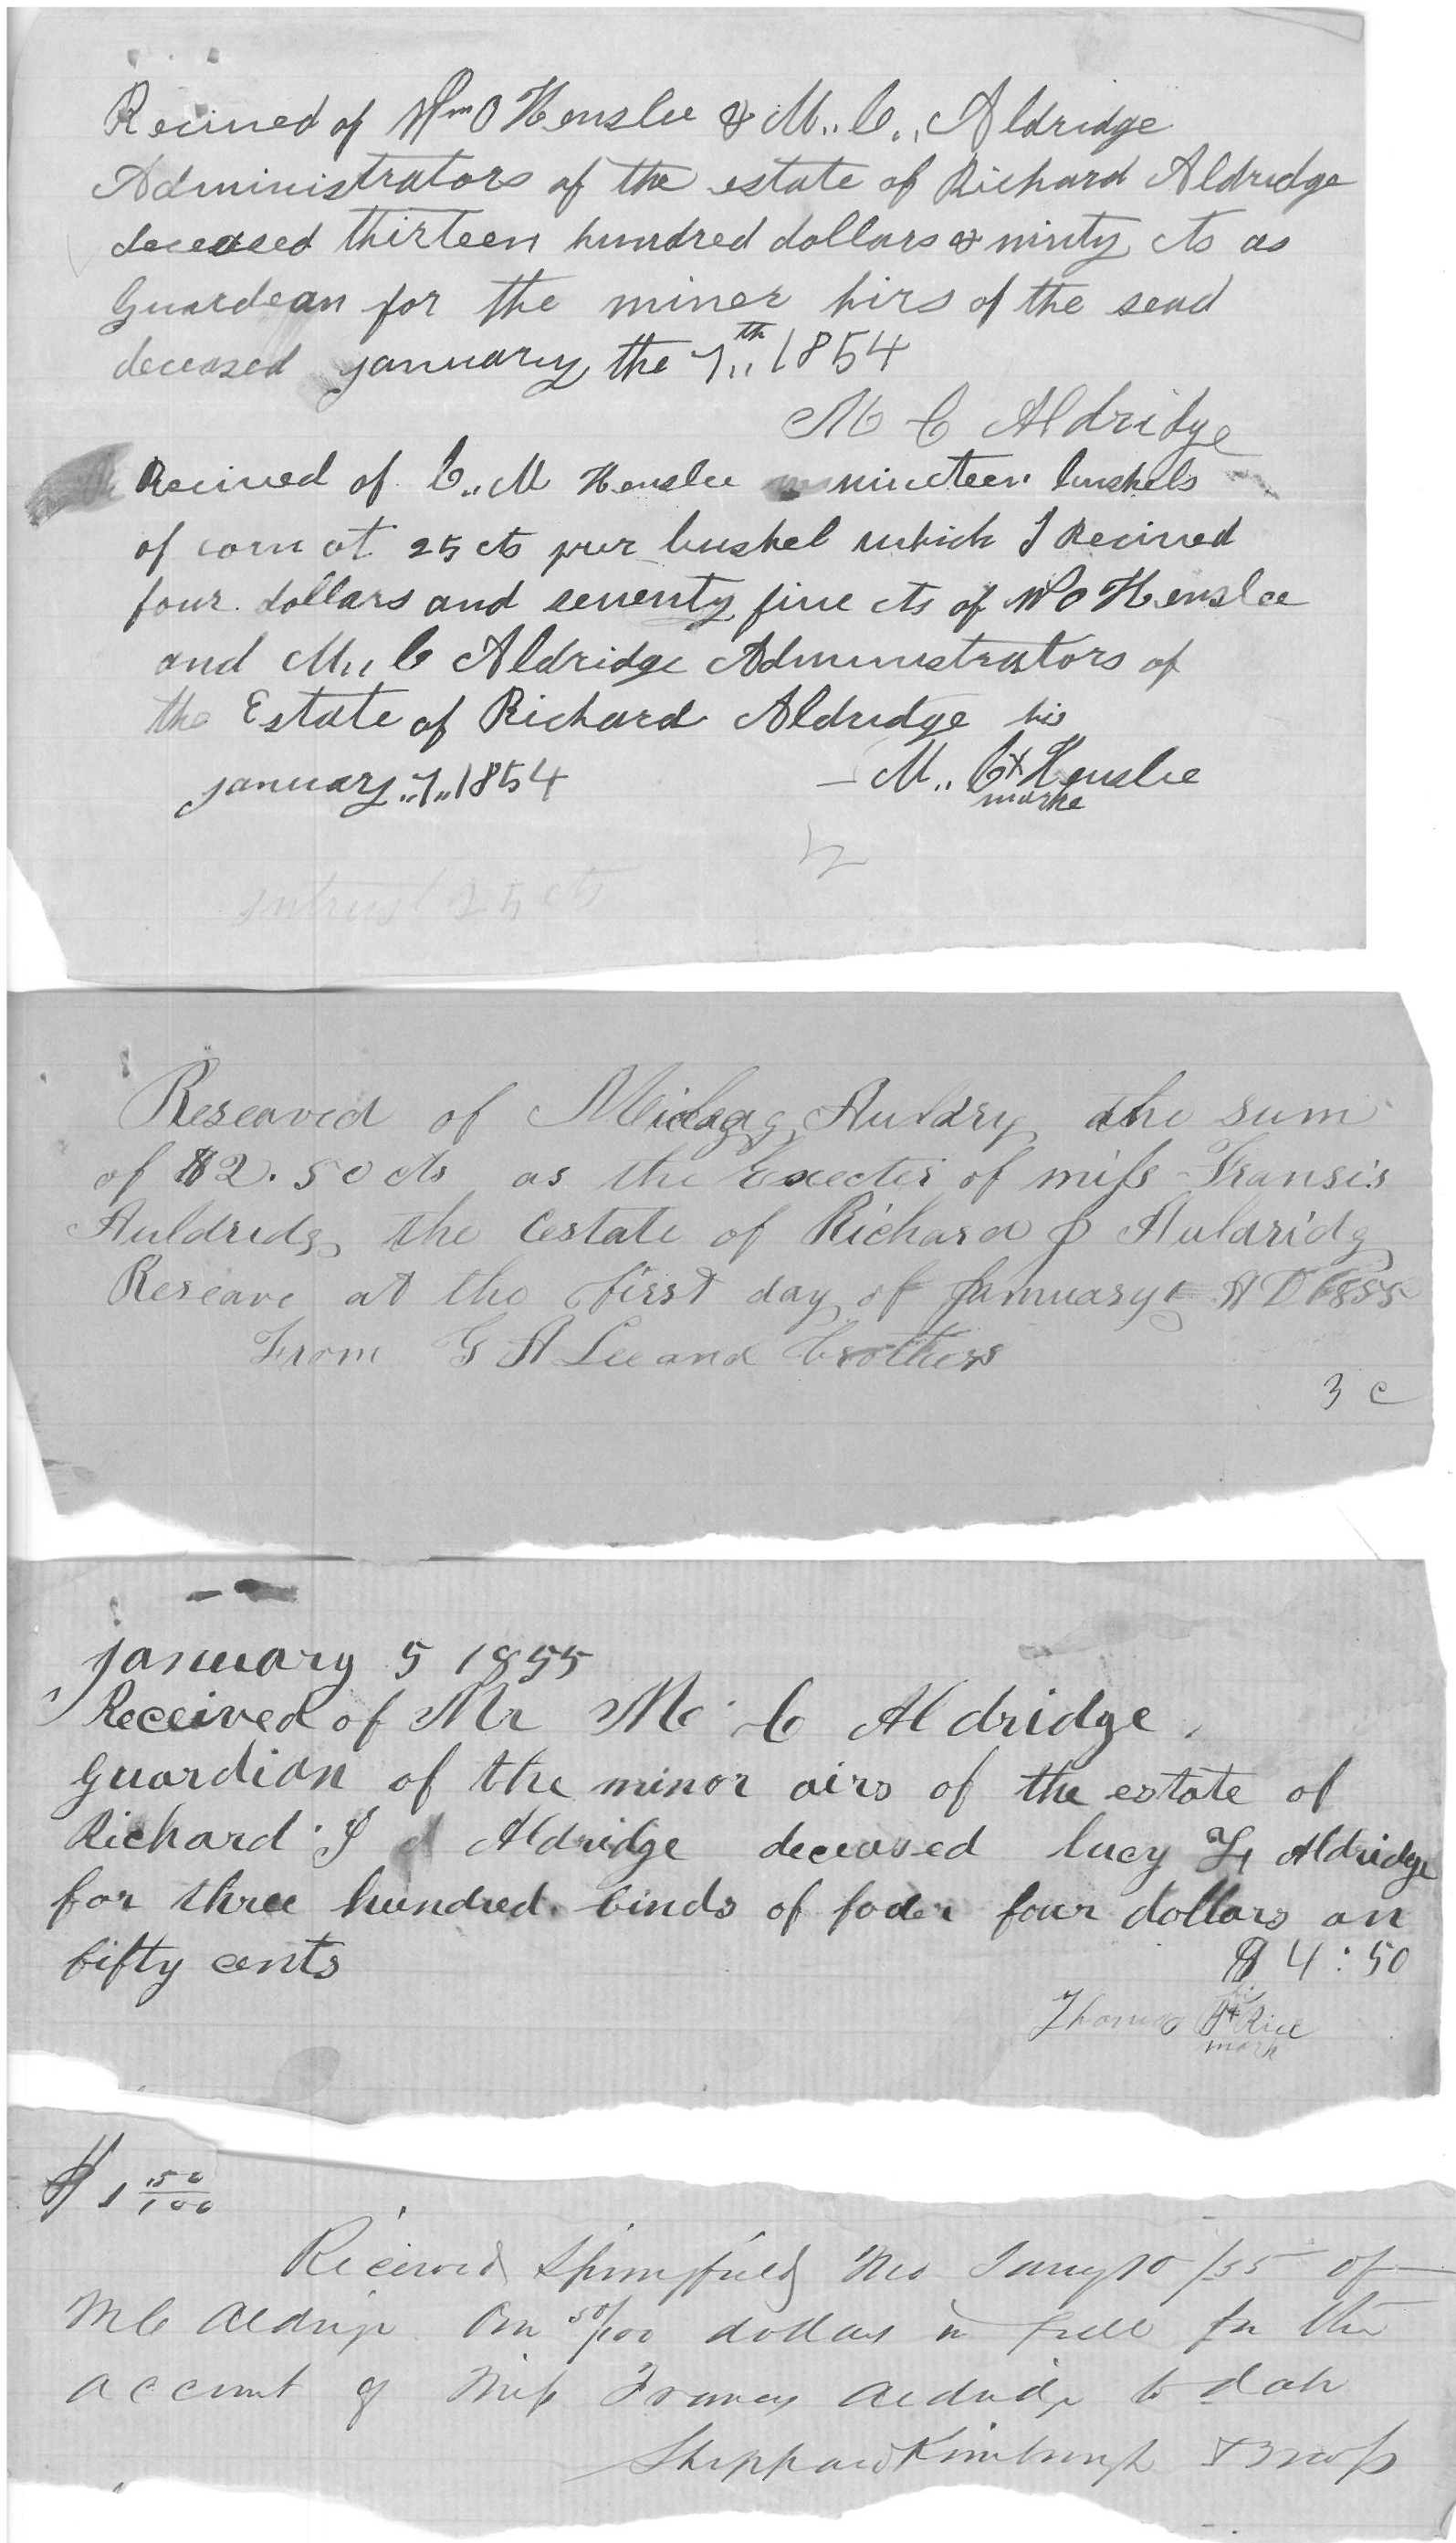 Recived of Wm O Henslee & M.. C.. Aldridge
Administrators of the estate of Richard Aldridge
deceased thirteen hundred dollars & ninty cts as
Guardean for the miner hirs of the sead
deceased january the 7th 1854
M C Aldridge
Recived of C.. M Henslee nineteen bushels
of corn at 25 cts pur bushel which I Recived
four dollars and seventy five cts of W O Henslee
and M.. C Aldridge Administrators of
the Estate of Richard Aldridge his
january..7..1854 M.. C x Henslee
marke
intrust 25 cts
Reseaved of Auldry the sum
of $2.50 cts as the Execter of miss Fransis
Auldredg the Eestate of Richard J Auldridg
Reseave at the first day of January AD 1855
From G A Lee and brothers
3 c
january 5 1855
Received of Mr M C Aldridge.
guardian of the minor airs of the estate of
Richard Aldridge deceased lucy Aldridge
for three hundred binds of foder four dollars an
fifty cents
$ 4:50
Thomas x Rice
mark
$ 1 50/100
Received Springfield Mo Jany 10 /55 of
M C Aldrige One 50/100 dollars in full for the
account of Miss Frances Aldridge to date
Sheppard Kimbrough &